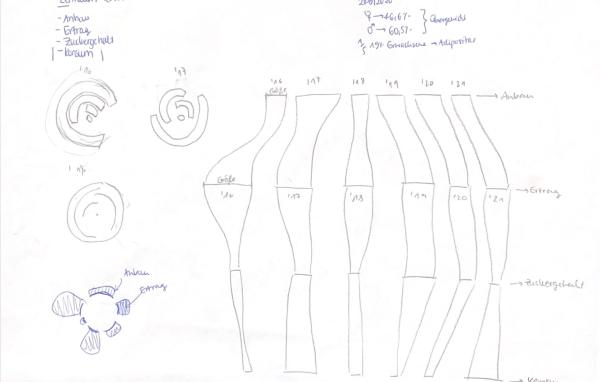 - Anbau
- Ertrag
- Zuckergehalt
- Konsum
♀ → 46,6%
♂ → 60,5%
} Übergewicht
19% Erwachsene → Adipositas
'16
'17
'16 '17 '18 '19 '20 '21
Größe
→ Anbau
Größe
'16 '17 '18 '19 '20 '21
→ Ertrag
→ Zuckergehalt
Anbau
Ertrag